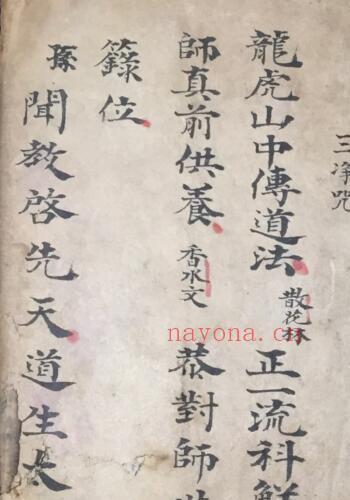 三净咒
龍虎山中傳道法 散花林 正一流科
師真前供養 香水文 恭對師
籙位
孫 聞教啓先天道生大
nayona.cn